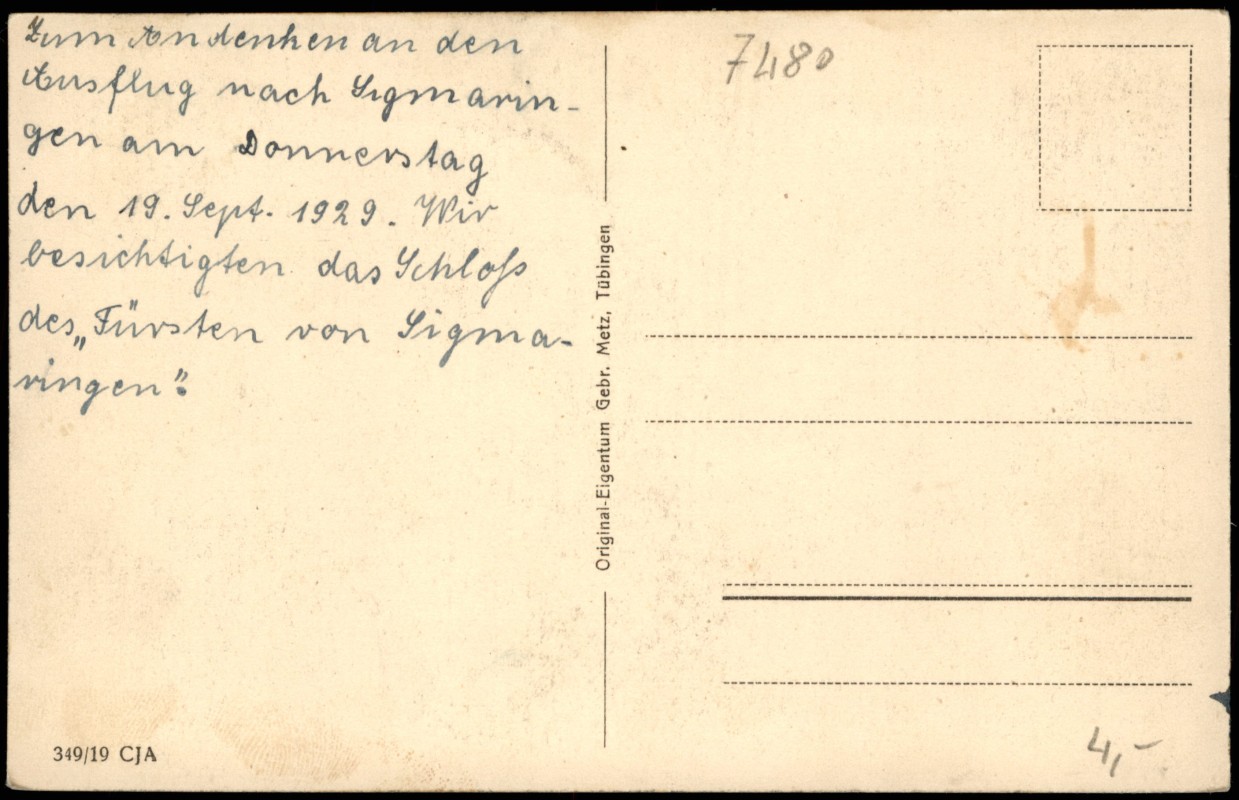 Zum Andenken an den
Ausflug nach Sigmarin-
gen am Donnerstag
den 19. Sept. 1929. Wir
besichtigten das Schloß
des „Fürsten von Sigma-
ringen“.
349/19 CJA
Original-Eigentum Gebr. Metz, Tübingen
7480
4,-